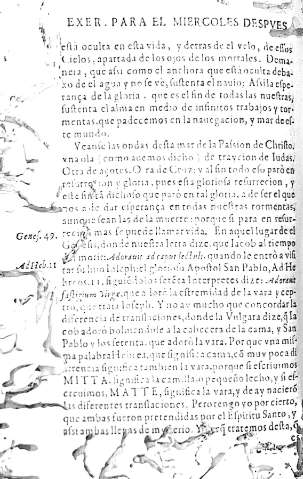 EXER. PARA EL MIERCOLES DESPVES
está oculta en esta vida, y detras de el velo, de essos
Cielos, apartada de los ojos de los mortales. De ma-
nera, que assi como el anchora que está oculta deba-
xo de el agua y no se vè, sustenta el nauio; Assi la espe-
rança de la gloria. que es el fin de todas las nuestras,
sustenta el alma en medio de infinitos trabajos y tor-
mentas, que padecemos en la nauegacion, y mar de es-
te mundo.
Veanse las ondas desta mar de la Passion de Christo,
vna ola (como auemos dicho) de traycion de Iudas.
Otra de açotes, Otra de Cruz; y al fin todo esso paró en
resurreccion y gloria, pues essa gloriosa resurrecion, y
este fin tã dichoso que paró en tal gloria, a de ser el que
nos a de dar esperança en todas nuestras tormentas,
aunque sean las de la muerte: porque si para en resur-
mas se puede llamar vida. En aquel lugar de el
Genes. 47.
donde nuestra letra dize, que Iacob al tiempo
morir: Adorauit ad caput lectuli, quando le entró a visi-
Ad Heb. 11
tar su hijo Ioseph: el glorioso Apostol San Pablo, Ad He
breos. 11. siguiẽdo los setẽta Interpretes dize: Adorauit
fastigium Virgæ, que adoró la estremidad de la vara y cep-
tro, que traîa Ioseph. Y no ay mucho que concordar la
diferencia de translaciones, donde la Vulgata dize, q̃ Ia
cob adoró boluiendose a la cabecera de la cama, y San
Pablo y los setenta, que adoró la vara. Por que vna mis-
ma palabra Hebrea, que significa cama, cõ muy poca di
ferencia significa tambien la vara, porque si escriuimos
MITTA, significa la camilla o pequeño lecho, y si es-
criuimos, MATTE, significa la vara, y de ay nacierõ
las diferentes translaciones. Pero tengo yo por cierto,
que ambas fueron pretendidas por el Espiritu Santo, y
assi ambas llenas de mysterio. Y tratemos desta, q̃